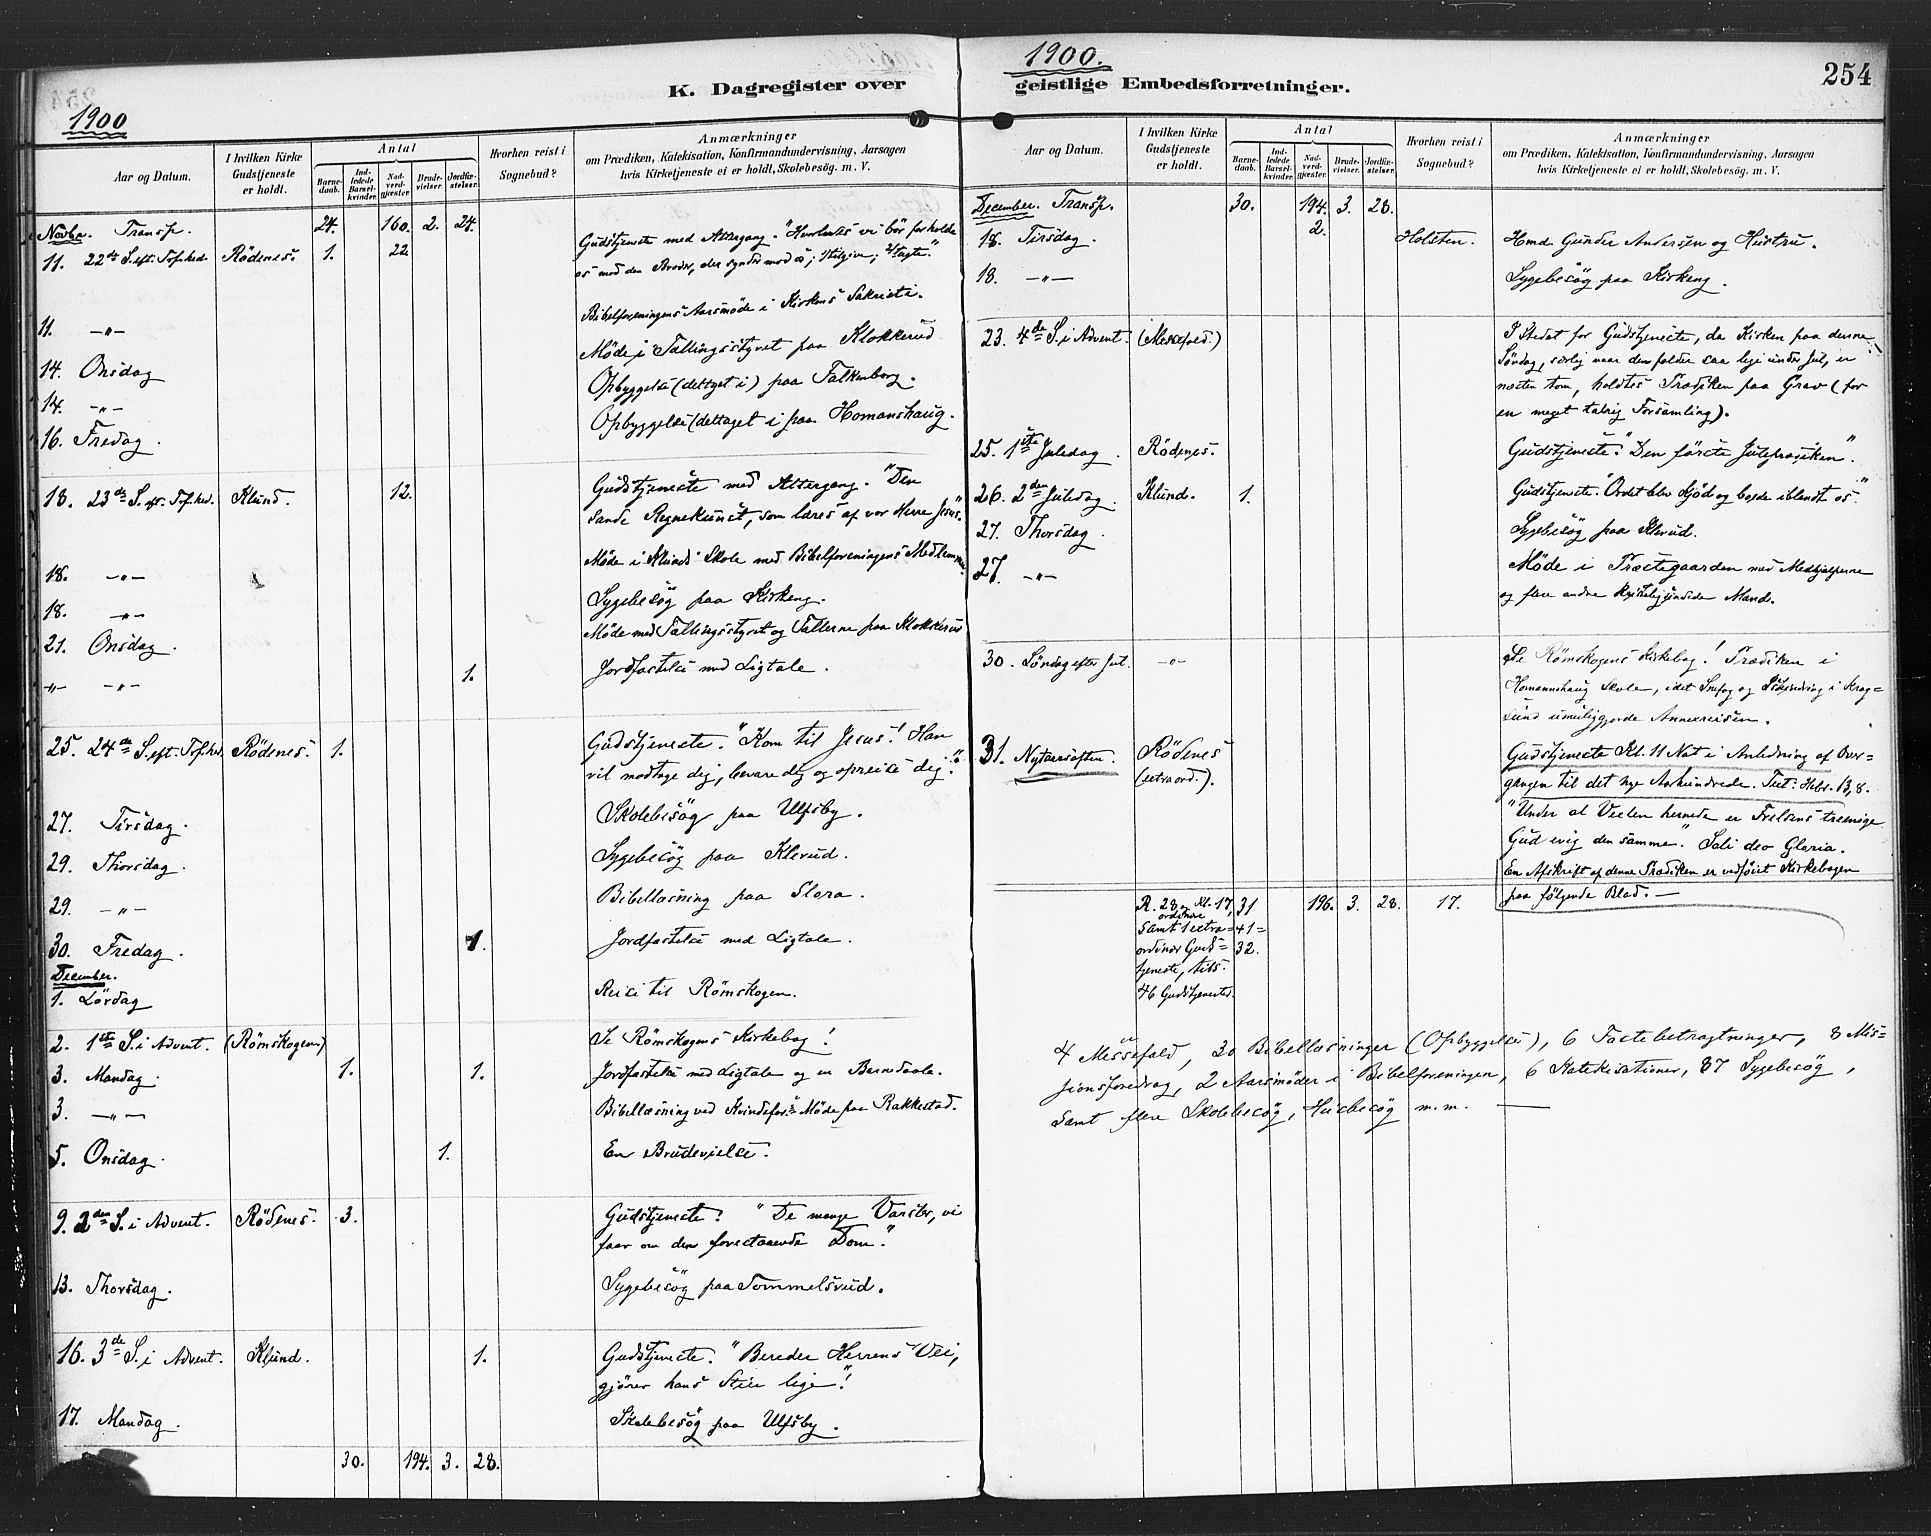 K. Dagregister over
1900
Aar og Datum.
I hvilken Kirke Gudstjeneste er holdt.
Antal
Barne-daab.
Ind-ledede Barsel-kvinder.
Nad-verd-gjester.
Brude-vielser.
Jordfæ-stelser.
Hvorhen reist i Sognebud?
Anmærkninger
om Prædiken, Katekisation, Konfirmandundervisning, Aarsagen
hvis Kirketjeneste ei er holdt, Skolebesøg. m. V.
Novbr. Transp. 24. 160. 2. 24.
11. 22de S. eft. Tref.hed. Rödenes. 1. 22. Gudstjeneste med Altergang. "Hvorledes vi bør forholde
os med den Broder, der synder mod os;
11. —"— Bibelforeningens Aarsmøde i Kirkens Sakristi.
14. Onsdag Møde i Tællingsstyret paa Klokkerud
14. —"— Opbyggelse (deltaget i) paa Falkenborg.
16. Fredag. Opbyggelse (deltaget i) paa Homanshaug.
18. 23de S. eft. Tref.hed. Klund. 12. Gudstjeneste med Altergang. "Den
sande Regnekunst, som læres af vor Herre Jesus."
18. —"— Møde i Klunds Skole med Bibelforeningens Medlemmer.
18. —"— Sygebesøg paa Kirkeng.
21. Onsdag. Møde med Tællingsstyret og Tællerne paa Klokkerud
—"— —"— 1. Jordfæstelse med Ligtale.
25. 24de S. eft. Tref.hed. Rödenes. 1. Gudstjeneste. "Kom til Jesus! Han
vil modtage dig, bevare dig og opreise dig."
27. Tirsdag. Skolebesøg paa Ulfsby.
29. Thorsdag. Sygebesøg paa Klerud.
29. —"— Bibellæsning paa Flora.
30. Fredag. 1. Jordfæstelse med Ligtale.
December.
1. Lørdag Reise til Rømskogen.
2. 1ste S. i Advent. (Rømskogen) Se Rømskogens Kirkebog!
3. Mandag. 1. 1. Jordfæstelse med Ligtale og en Barnedaab.
3. —"— Bibellæsning ved Kvindefor.s Møde paa Rakkestad.
5. Onsdag. 1. En Brudevielse.
9. 2den S. i Advent. Rödenes. 3. Gudstjeneste: "De mange Varsler, vi
faar om den forestaaende Dom."
13. Thorsdag. Sygebesøg paa Tommelsrud.
16. 3de S. i Advent. Klund. 1. Gudstjeneste. "Bereder Herrens Vei,
gjører hans Stier lige"!
17. Mandag. Skolebesøg paa Ulfsby.
30. 194. 3. 28.
1900.
geistlige Embedsforretninger.
254
Aar og Datum.
I hvilken Kirke Gudstjeneste er holdt.
Antal
Barne-daab.
Ind-ledede Barsel-kvinder.
Nad-verd-gjester.
Brude-vielser.
Jordfæ-stelser.
Hvorhen reist i Sognebud?
Anmærkninger
om Prædiken, Katekisation, Konfirmandundervisning, Aarsagen
hvis Kirketjeneste ei er holdt, Skolebesøg. m. V.
December. Transp. 30. 194. 3. 28.
18. Tirsdag. 2. Holsten. Hmd. Gunder Andersen og Hustru.
18. —"— Sygebesøg paa Kirkeng.
23. 4de S. i Advent. (Messefald.) I Stedet for Gudstjeneste, da Kirken paa denne
Søndag, særlig naar den falder saa lige under Jul, er
næsten tom, holdtes Prædiken paa Grav (for
en meget talrig Forsamling).
25. 1ste Juledag. Rödenes. Gudstjeneste. "Den første Juleprædiken."
26. 2den Juledag. Klund. 1. Gudstjeneste. "Ordet blev Kjød og boede iblandt os."
27. Thorsdag. Sygebesøg paa Klerud.
27. —"— Møde i Præstegaarden med Medhjælperne
og flere andre kristeligsindede Mænd.
30. Søndag efter Jul. —"— Se Rømskogens Kirkebog! Prædiken i
Homannshaug Skole, idet Snefog og i Krog-
sund umuliggjorde Annexreisen.
31. Nytaarsaften. Rödenes (extraord.). Gudstjeneste Kl. 11 Nat i Anledning af Over-
gangen til det nye Aarhundrede. Text: Hebr. 13,8.
"Under al Vexlen hernede er Frelsens treenige
Gud evig den samme." Soli deo Gloria.
En Afskrift af denne Prædiken er vedføiet Kirkebogen
paa følgende Blad. —
R. 28, Kl. 17, 31 196. 3. 28. 17.
ordinære
samt 1 extra= 41=
ordinær Guds= 32.
tjeneste, tils.
46 Gudstjenester.
4 Messefald, 30 Bibellæsninger (Opbyggelse), 6 Fastebetragtninger, 8 Mis=
sionsforedrag, 2 Aarsmøder i Bibelforeningen, 6 Katekisationer, 87 Sygebesøg,
samt flere Skolebesøg, Husbesøg m.m. —